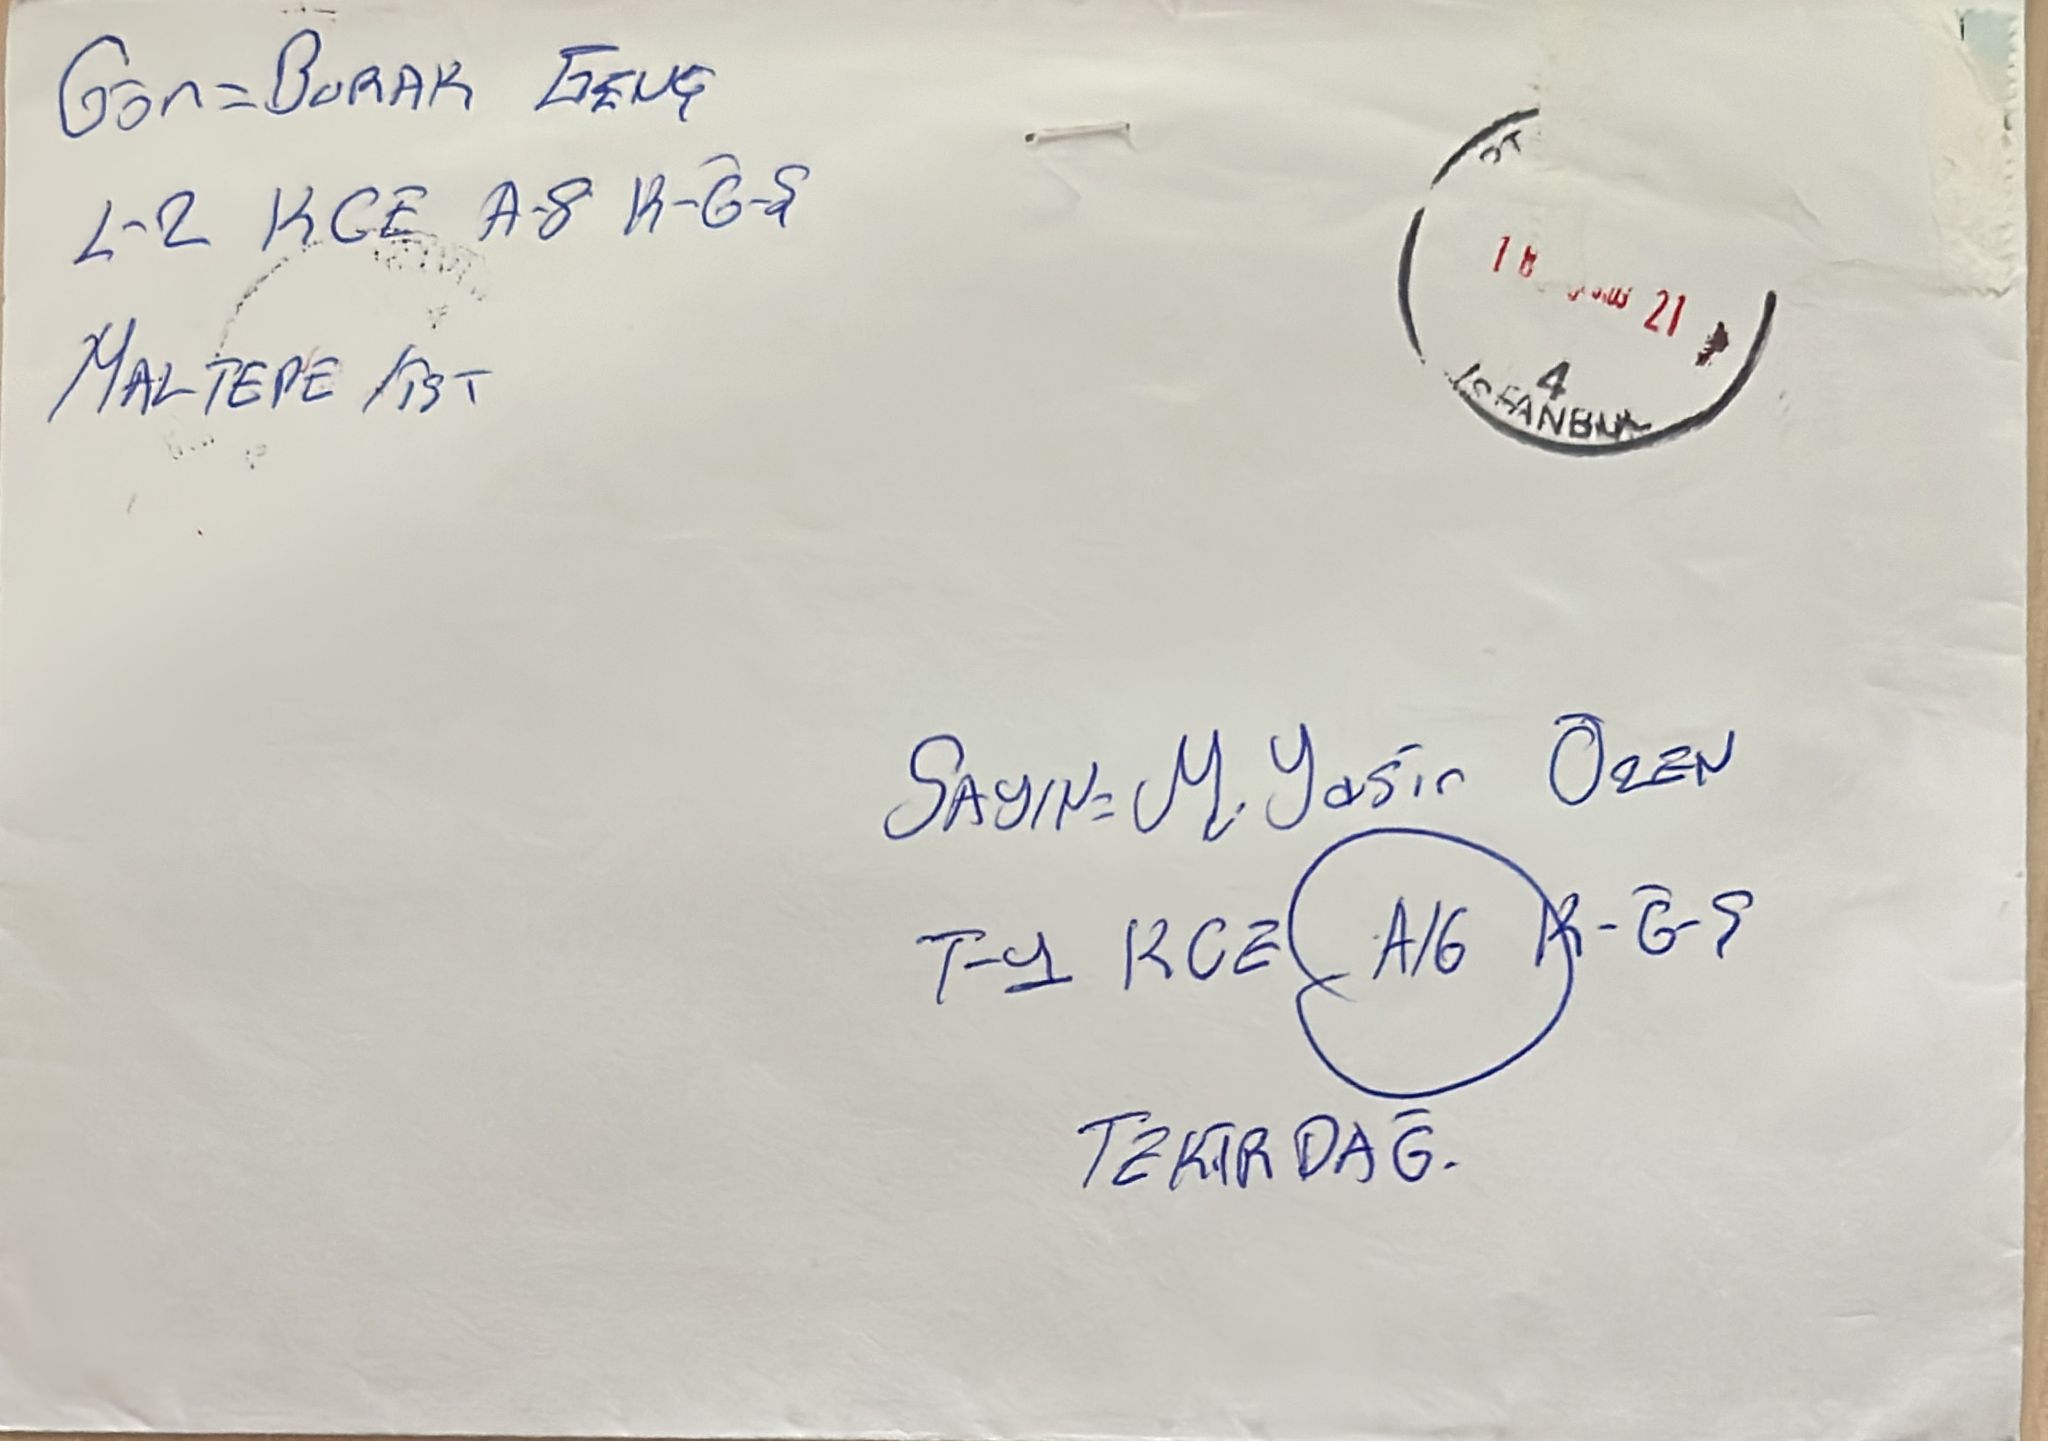 Gön=BURAK GENÇ
L-2 KCE A-8 K-G-Ş
MALTEPE/İST
18 21
4
İSTANBUL
SAYIN=M.Yasir ÖZEN
T-1 KCE A/6 K-G-Ş
TEKİRDAĞ.